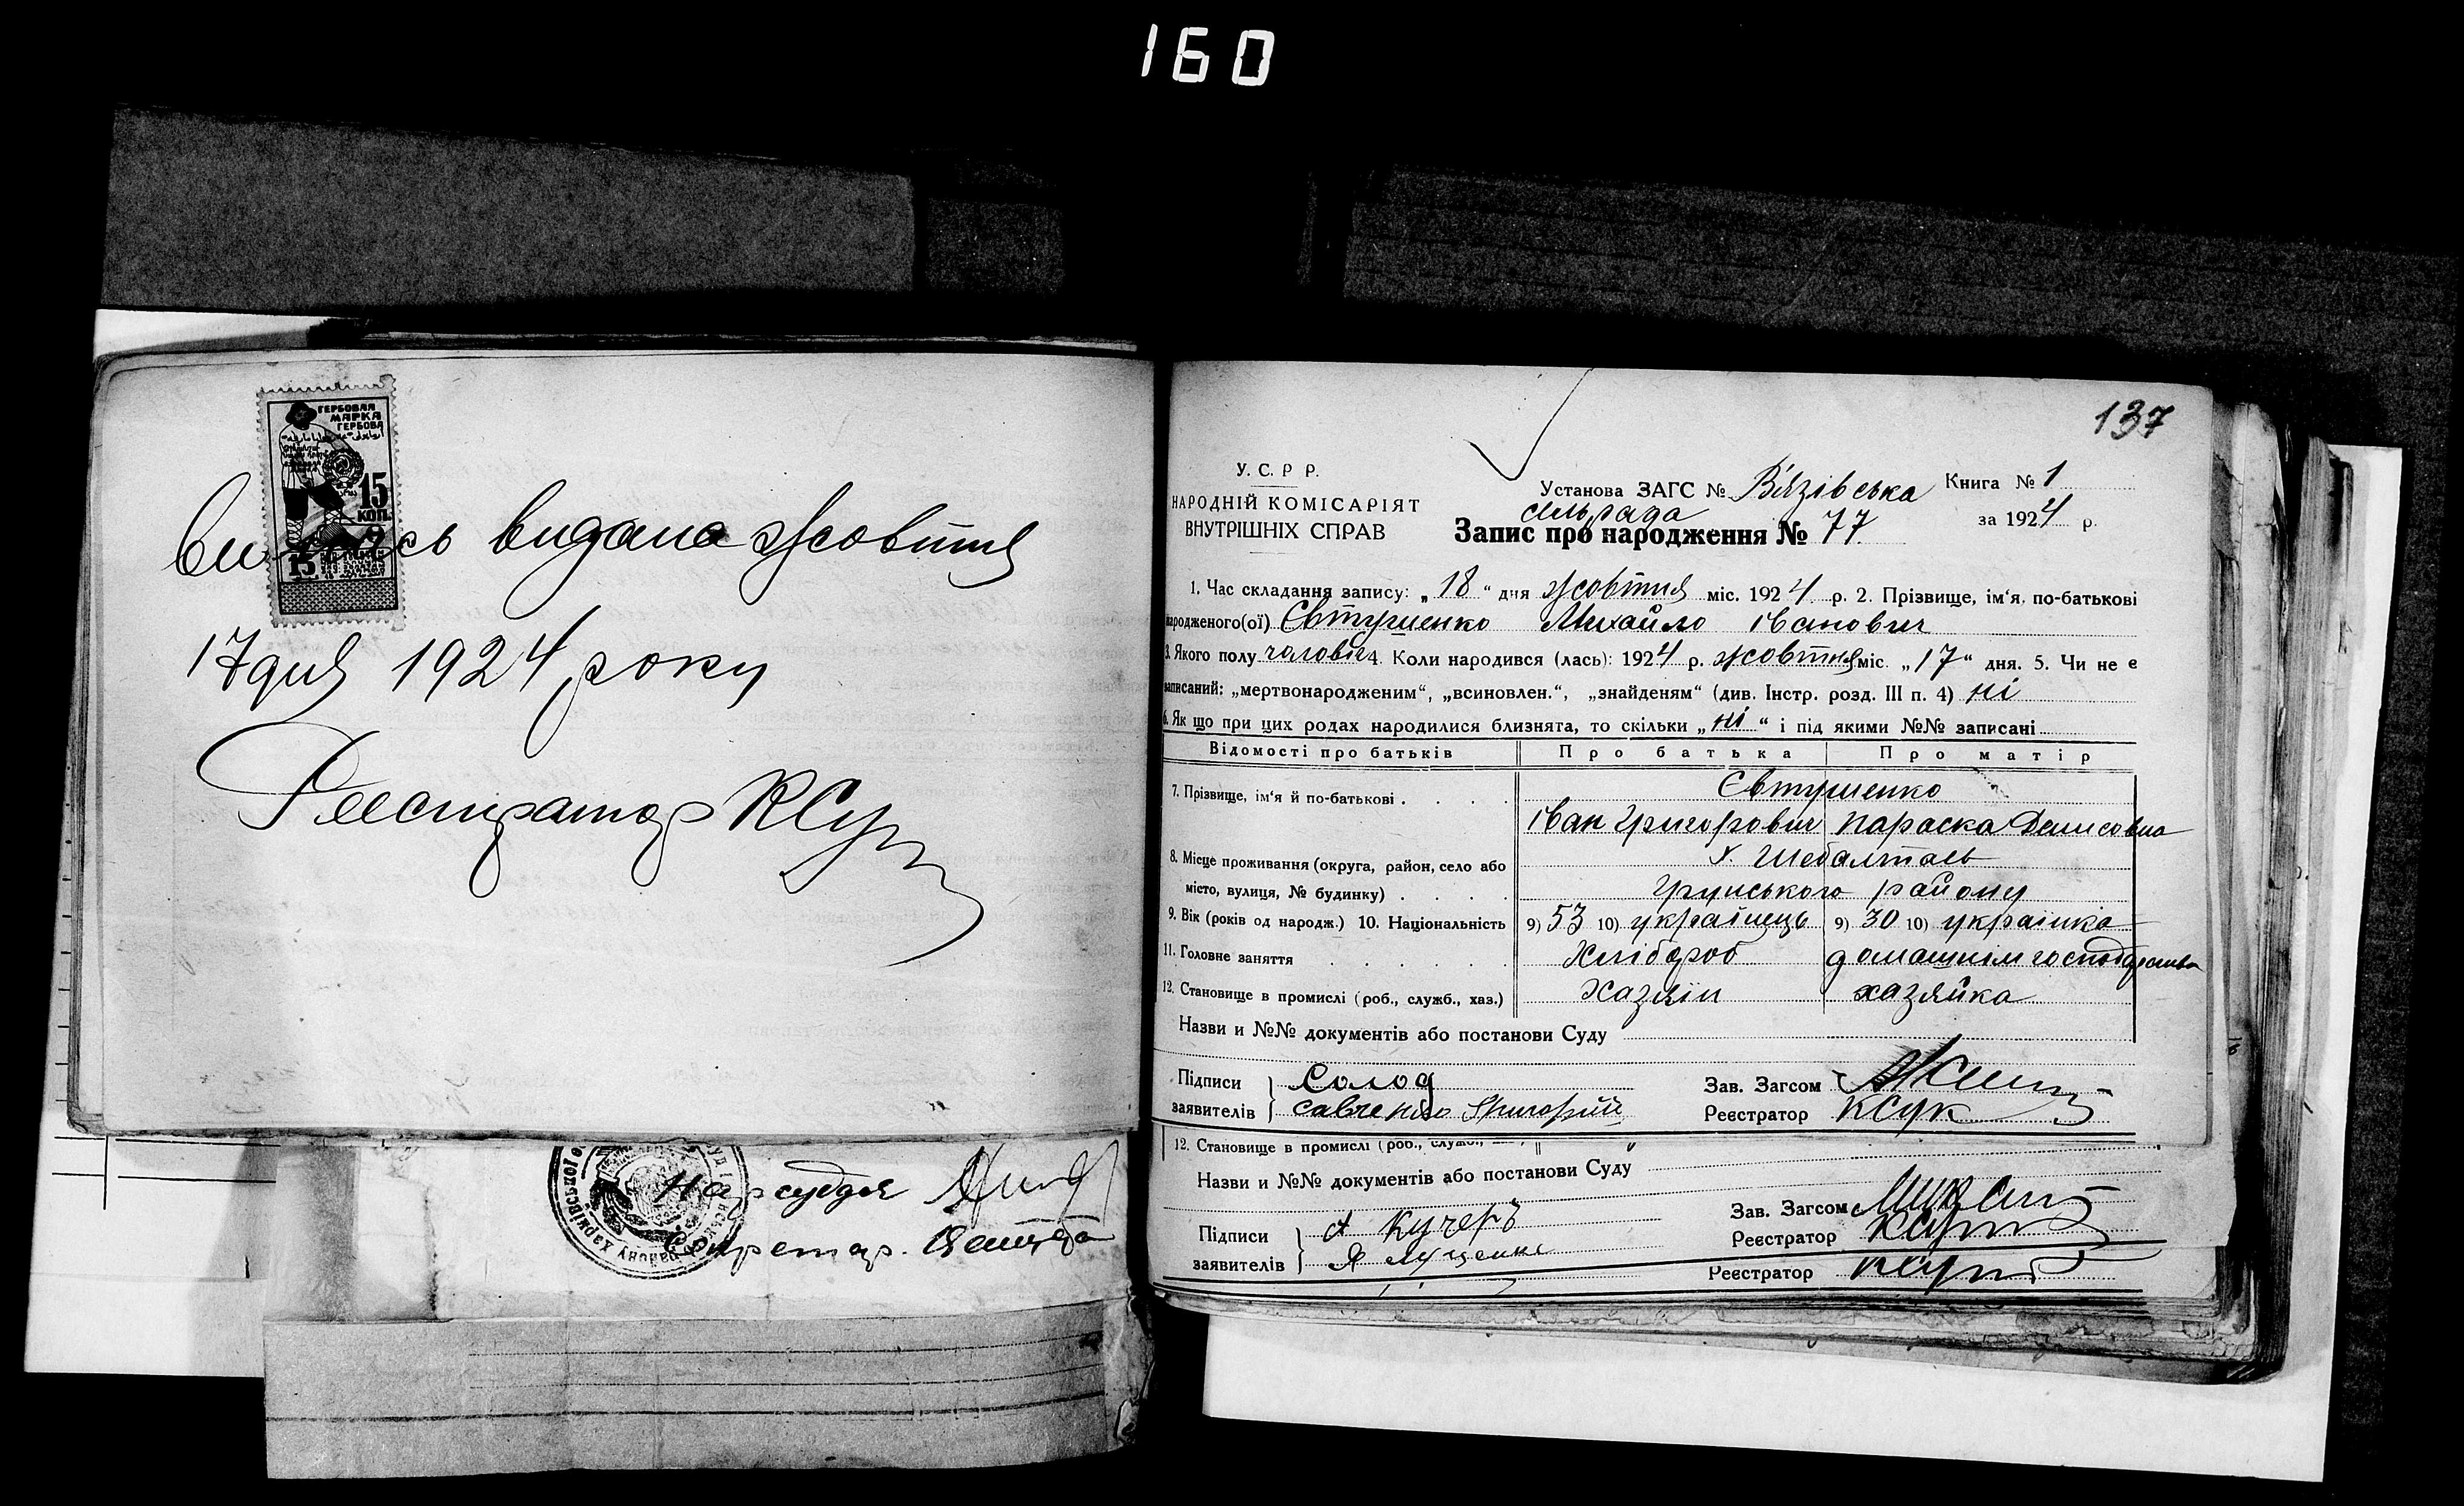 160
ГЕРБОВАЯ
МАРКА
ГЕРБОВА
15
КОП.
15
видана жовтня
17 дня 1924 року
Реєстратор КСук
Нарсуддя
Секретар.
137
У. С. Р Р.
НАРОДНІЙ КОМІСАРІЯТ
ВНУТРІШНІХ СПРАВ
Установа ЗАГС № Вязівська
сельрада
Книга № 1
за 1924 р.
Запис про народження № 77
1. Час складання запису: „ 18 “ дня жовтня міс. 1924 р. 2. Прізвище, ім‘я, по-батькові
народженого(ої) Євтушенко Михайло Іванович
3. Якого полу чоловіч 4. Коли народився (лась): 1924 р. жовтня міс. „17“ дня. 5. Чи не є
записаний: „мертвонародженим“, „всиновлен.“, „знайденям“ (див. Інстр. розд. III п. 4) ні
6. Як що при цих родах народилися близнята, то скільки „ні“ і під якими №№ записані
Відомості про батьків Про батька Про матір
7. Прізвище, ім‘я й по-батькові . . . . Євтушенко
Іван Григорович Параска Денисовна
8. Місце проживання (округа, район, село або х. Шебалтаєв
місто, вулиця, № будинку) . . . . Грунського району
9. Вік (років од народж.) 10. Національність 9) 53 10) українець 9) 30 10) українка
11. Головне заняття . . . . . Хлібороб домашнім господарства
12. Становище в промислі (роб., служб., хаз.) Хазяїн хазяйка
Назви и №№ документів або постанови Суду
Підписи Солод Зав. Загсом
заявителів Савченко Григорій Реєстратор КСук
12. Становище в промислі (роб., служб.,
Назви и №№ документів або постанови Суду
Зав. Загсом
Підписи А Кучеръ Реєстратор КСук
заявителів Я Луценко
Реєстратор КСук